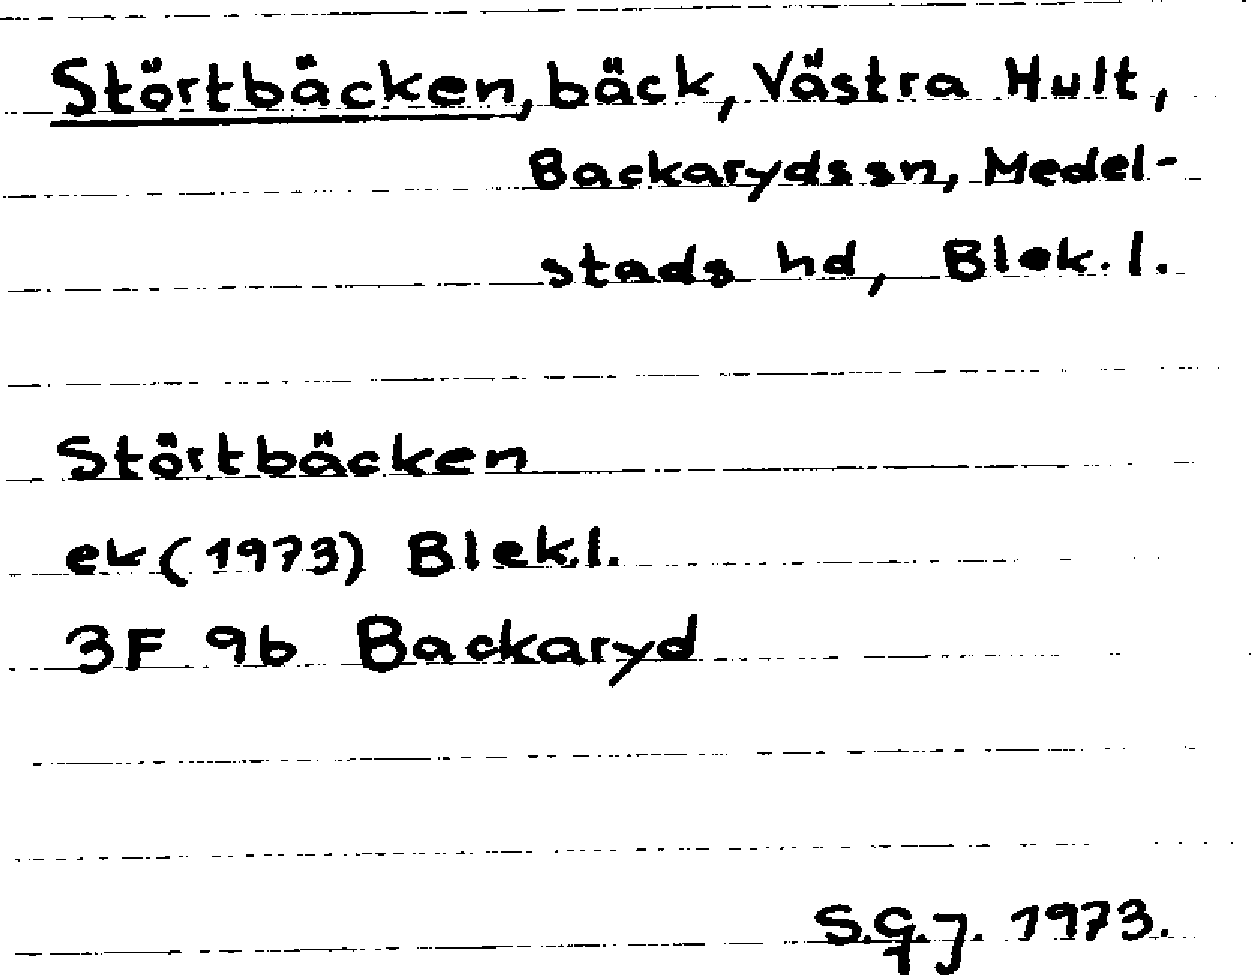 Störtbäcken, bäck, Västra Hult,
Backaryds sn, Medel-
stads hd, Blek. l.
Störtbäcken
ek (1973) Blek.l.
3F 9b Backaryd
S.G.J. 1973.